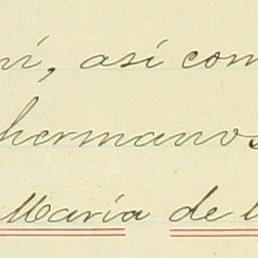 así com
hermanos
María de l